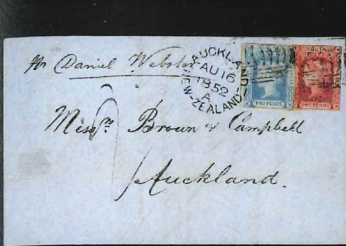 Pr Daniel Webster
AUCKLAND
AU 16
1852
A
NEW-ZEALAND
TWO PENCE
ONE PENNY
Messrs Brown & Campbell
Auckland.